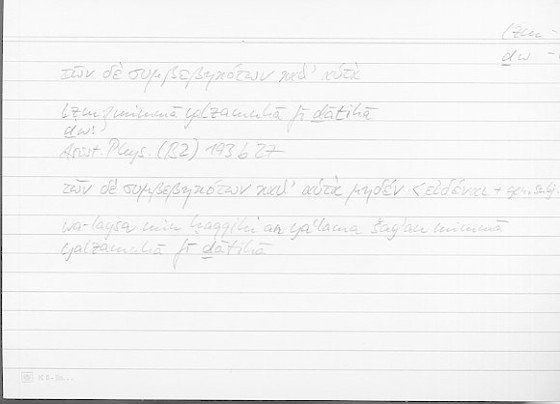 lzm -
ḏw -
τῶν δὲ συμβεβηκότων καθ' αὑτὰ
lzm: mimmā yalzamuhā fī ḏātihā
ḏw:
Arist. Phys. (B2) 193 b 27
τῶν δὲ συμβεβηκότων καθ' αὑτὰ μηδέν < εἰδέναι + gen.
wa-laysa min ḥaqqihī an yaʿlama šayʾan mimmā
yalzamuhā fī ḏātihā